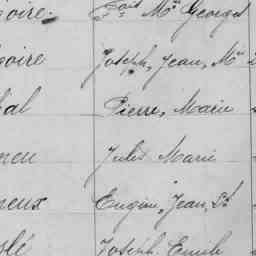 oire. Mie Georges
oire Joseph, Jean, Mie
al Pierre, Marie
neu Jules Marie
neux Eugène, Jean, Bt
slé Joseph Emile